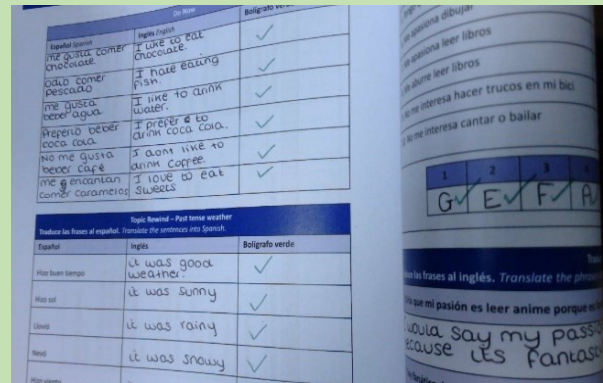 Do Now
Español Spanish
Inglés English
Bolígrafo
me gusta comer chocolate.
I like to eat chocolate.
odio comer pescado
I hate eating fish.
me gusta beber agua
I like to drink water.
Prefiero beber coca cola
I prefer to drink coca cola.
No me gusta beber café
I dont like to drink coffee.
me encantan comer caramelos
I love to eat sweets
Topic Rewind – Past tense weather
Traduce las frases al español. Translate the sentences into Spanish.
Español
Inglés
Bolígrafo verde
Hizo buen tiempo
it was good weather.
Hizo sol
it was sunny
Llovió
it was rainy
Nevó
it was snowy
apasiona dibujar
apasiona leer libros
aburre leer libros
No me interesa hacer trucos en mi bici
me interesa cantar o bailar
1 2 3
G E F A
las frases al inglés. Translate the
que mi pasión es leer anime porque es
would say my
its